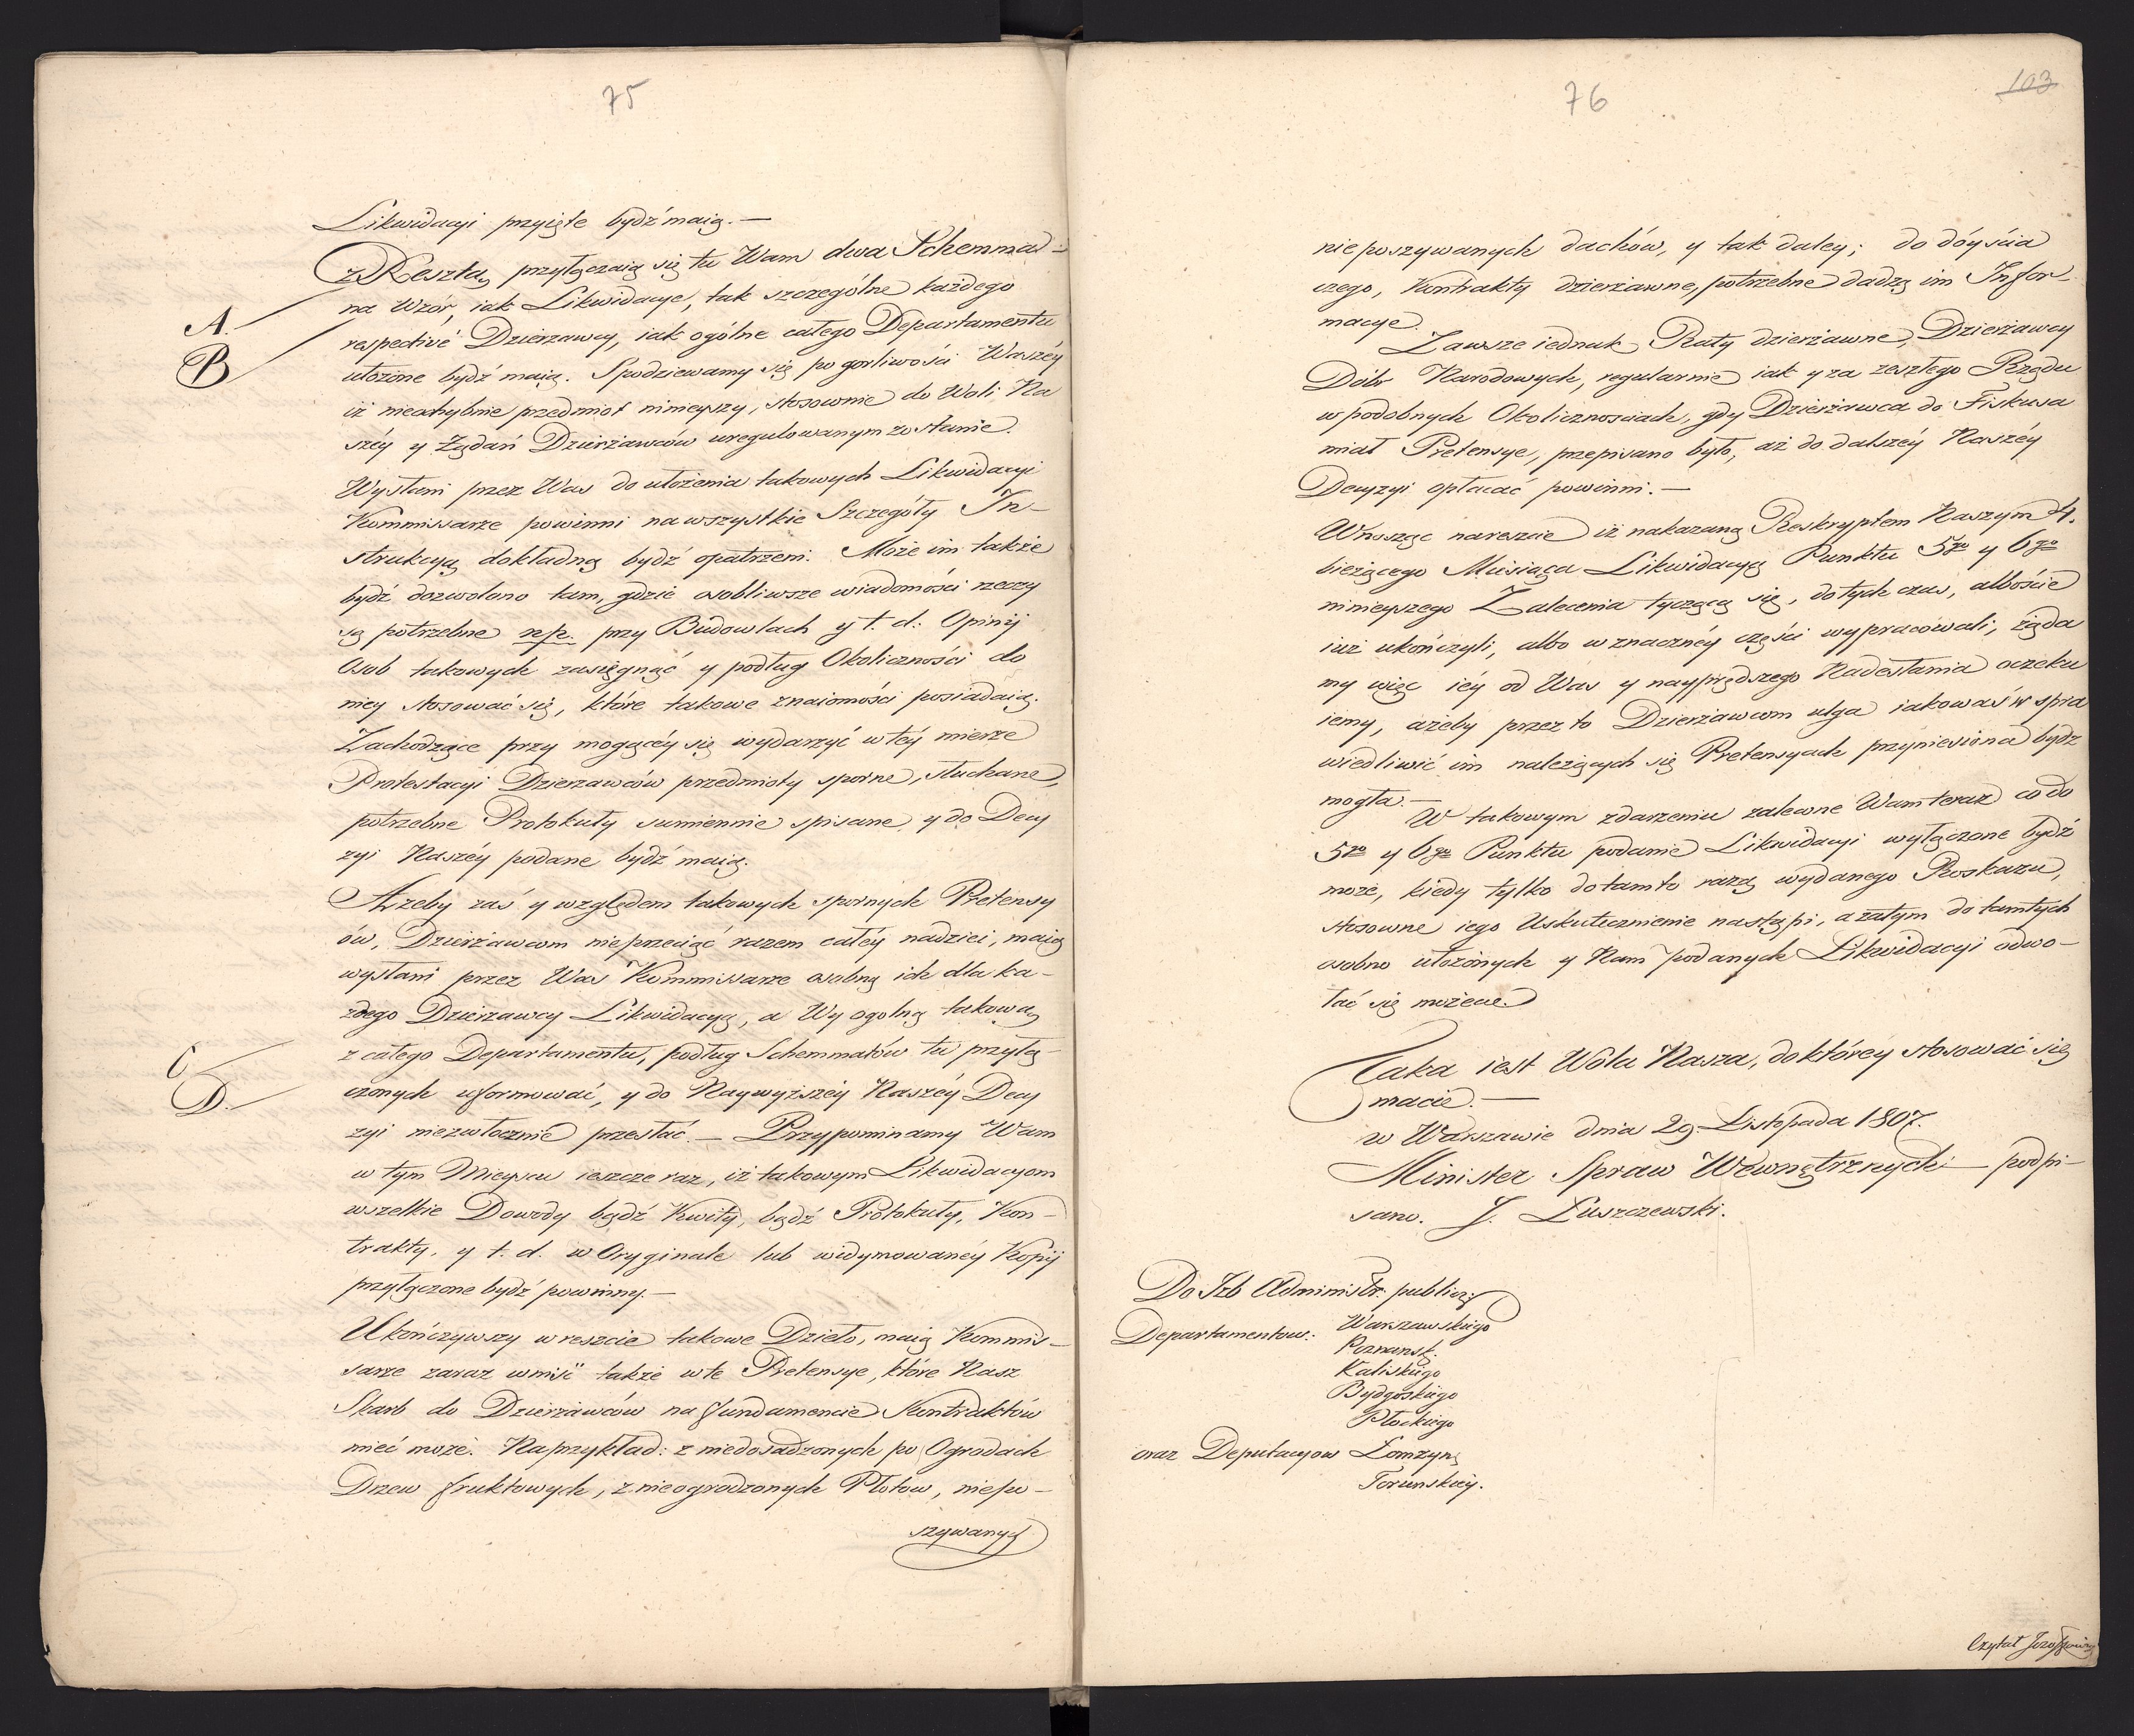 75
Likwidacyi przyięte bydź maią. —
z Resztą przyłączaią się tu Wam dwa Schemmat-
A.
na Wzór, iak Likwidacye, tak szczególne każdego
B
respectivé Dzierzawcy, iak ogólne całego Departamentu
ułożone bydź maią. Spodziewamy się po gorliwości Waszéy
iż niechybnie przedmiot ninieyszy, stosownie do Woli Na
széy y Żądań Dzierżawców uregulowanym zostanie.
Wysłani przez Was do ułożenia takowych Likwidacyi
Kommissarze powinni na wszystkie Szczegóły In-
strukcyą dokładną bydź opatrzeni. Może im także
bydź dozwolono tam, gdzie osobliwsze wiadomości rzeczy
są potrzebne np. przy Budowlach y t. d. Opinij
Osob takowych zasięgnąć y podług Okoliczności do
niey stosować się, które takowe znaiomości posiadaią.
Zachodzące przy mogącéy się wydarzyć w téy mierze
Protestacyi Dzierzawców przedmioty sporne, słuchane,
potrzebne Protokuły sumiennie spisane y do Decy
zyi Naszéy podane bydź maią.
Ażeby zaś y względem takowych spornych Pretensy
ów, Dzierżawcom nieprzeciąć razem całéy nadziei, maią
wysłani przez Was Kommissarze osobną ich dla ka-
żdego Dzierzawcy Likwidacyą, a Wy ogolną takową
C
z całego Departamentu, podług Schemmatów tu przyłą-
D.
czonych uformować, y do Naywyższéy Naszéy Decy
zyi niezwłocznié przesłać. — Przypominamy Wam
w tym Mieyscu ieszcze raz, iż takowym Likwidacyom
wszelkie Dowody bądź Kwity, bądź Protokuły, Kon-
trakty, y t. d. w Oryginale lub widymowanéy Kopij
przyłączone bydź powinny. —
Ukończywszy w reszcie takowe Dzieło, maią Kommis-
sarze zaraz wniść także w te Pretensye, które Nasz
Skarb do Dzierzawców na fundamencie Kontraktów
mieć może. Naprzykład: z niedosadzonych po Ogrodach
Drzew fruktowych, z nieogrodzonych Płotow, niepo-
szywanych
76
103
nieposzywanych dachów, y tak daley; do dóyścia
czego, Kontrakty dzierżawne, potrzebne dadzą im Infor-
macye.
Zawsze iednak Raty dzierżawne, Dzierżawcy
Dóbr Narodowych, regularnie iak y za zeszłego Rządu
w podobnych Okolicznościach, gdy Dzierżawca do Fiskusa
miał Pretensye, przepisano było, aż do dalszéy Naszéy
Decyzyi opłacać powinni. —
Wnosząc nareszcie iż nakazaną Reskryptem Naszym 4.
bieżącego Miesiąca Likwidacyą Punktu 5go y 6go
ninieyszego Zalecenia tyczącą się, dotychczas, alboście
iuż ukończyli, albo w znacznéy części wypracowali, żąda
my więc iéy od Was y nayprędszego Nadesłania oczeku
iemy, ażeby przez to Dzierżawcom ulga iakowaś w spra
wiedliwié im należących się Pretensyach przyniesiona bydz
mogła. —
W takowym zdarzeniu zalecone Wam teraz co do
5go y 6go Punktu podanie Likwidacyi wyłączone bydź
może, kiedy tylko do tamto razą wydanego Roskazu,
stosowne iego Uskutecznienie nastąpi, a zatym do tamtych
osobno ułożonych y Nam podanych Likwidacyi odwo-
łać się możecie.
Taka iest Wola Nasza, do którey stosować się
macie. —
w Warszawie dnia 29. Listopada 1807.
Minister Spraw Wewnętrznych — podpi-
sano. J. Łuszczewski.
Do Izb Administr. publicz:
Departamentow: Warszawskiego
Poznansk.
Kaliskiego
Bydgoskiego
Płockiego
oraz Deputacyow Łomzyns
Torunskiey.
Czytał